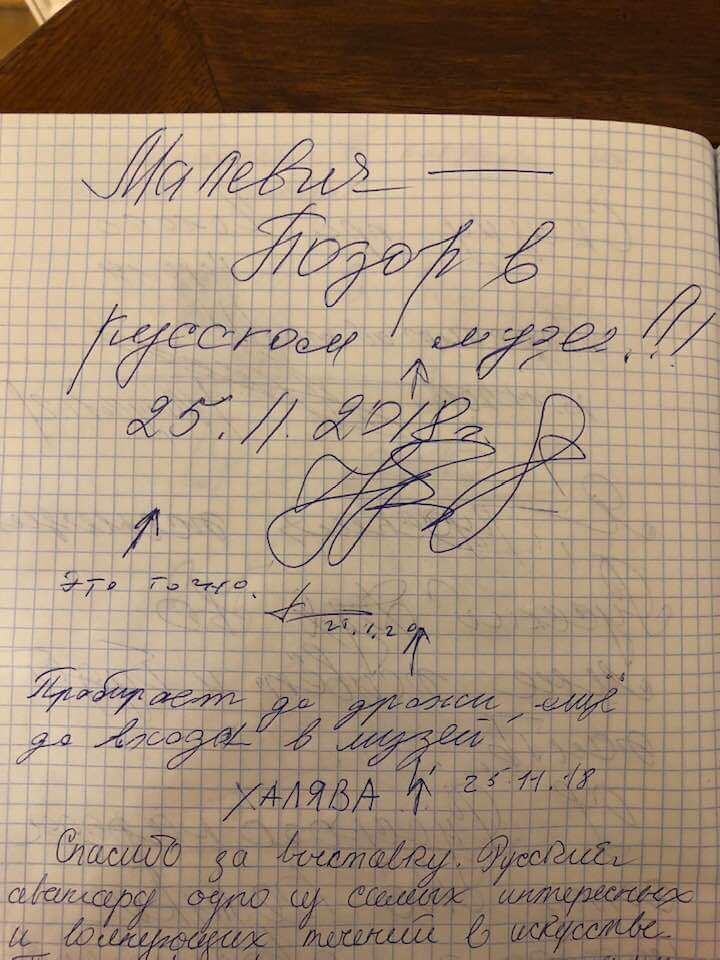 Малевич —
Позор в
русском музее!!!
25.11.2018г.
Это точно.
Пробирает до дрожи, ещё
до входа в музей
25 11.18
ХАЛЯВА
Спасибо за выставку. Русский
авангард одно из самых интересных
и волнующих течений в искусстве